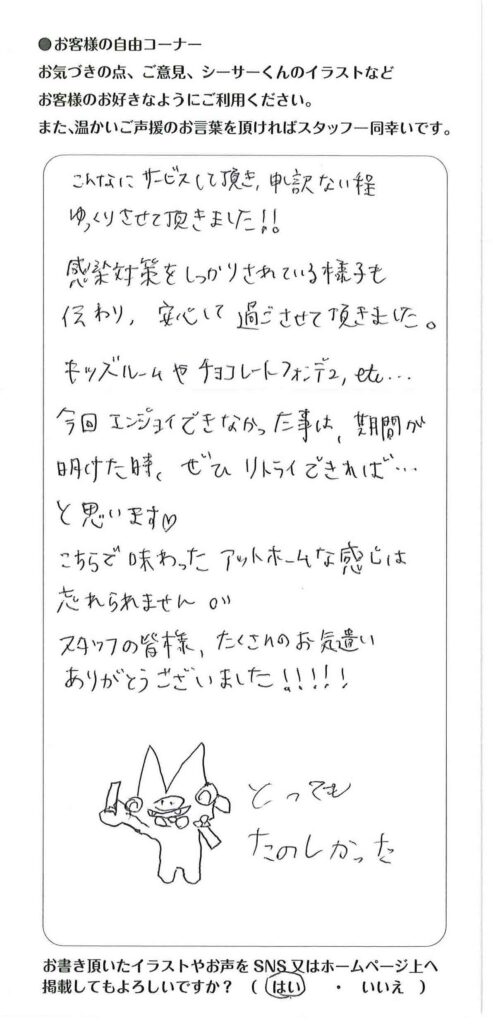 ●お客様の自由コーナー
お気づきの点、ご意見、シーサーくんのイラストなど
お客様のお好きなようにご利用ください。
また、温かいご声援のお言葉を頂ければスタッフ一同幸いです。
こんなにサービスして頂き、申訳ない程
ゆっくりさせて頂きました!!
感染対策をしっかりされている様子も
伝わり、安心して過ごさせて頂きました。
キッズルームやチョコレートフォンデュ, etc…
今回エンジョイできなかった事は、期間が
明けた時、ぜひリトライできれば…
と思います♡
こちらで味わったアットホームな感じは
忘れられません
スタッフの皆様、たくさんのお気遣い
ありがとうございました!!!!!
とっても
たのしかった
お書き頂いたイラストやお声をSNS又はホームページ上へ
掲載してもよろしいですか? ( はい ・ いいえ )